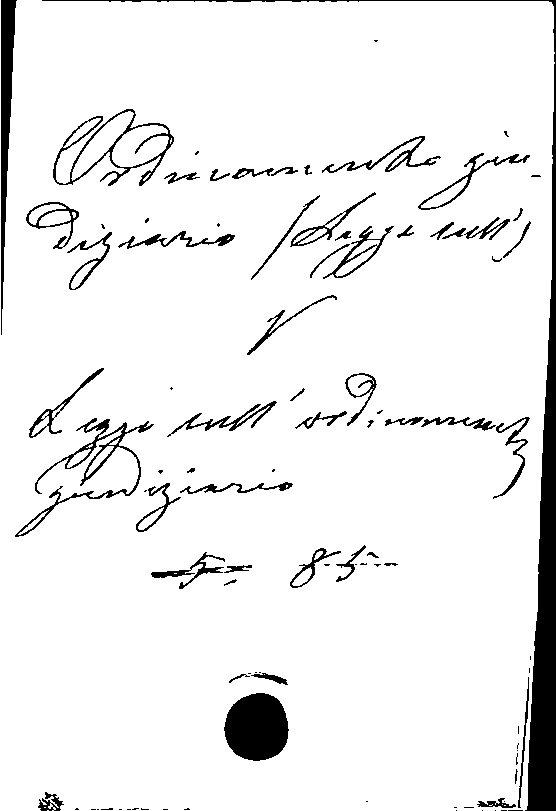 Ordinamento giu-
diziario (Legge sull')
V
Legge sull' ordinamento
giudiziario
5, 85